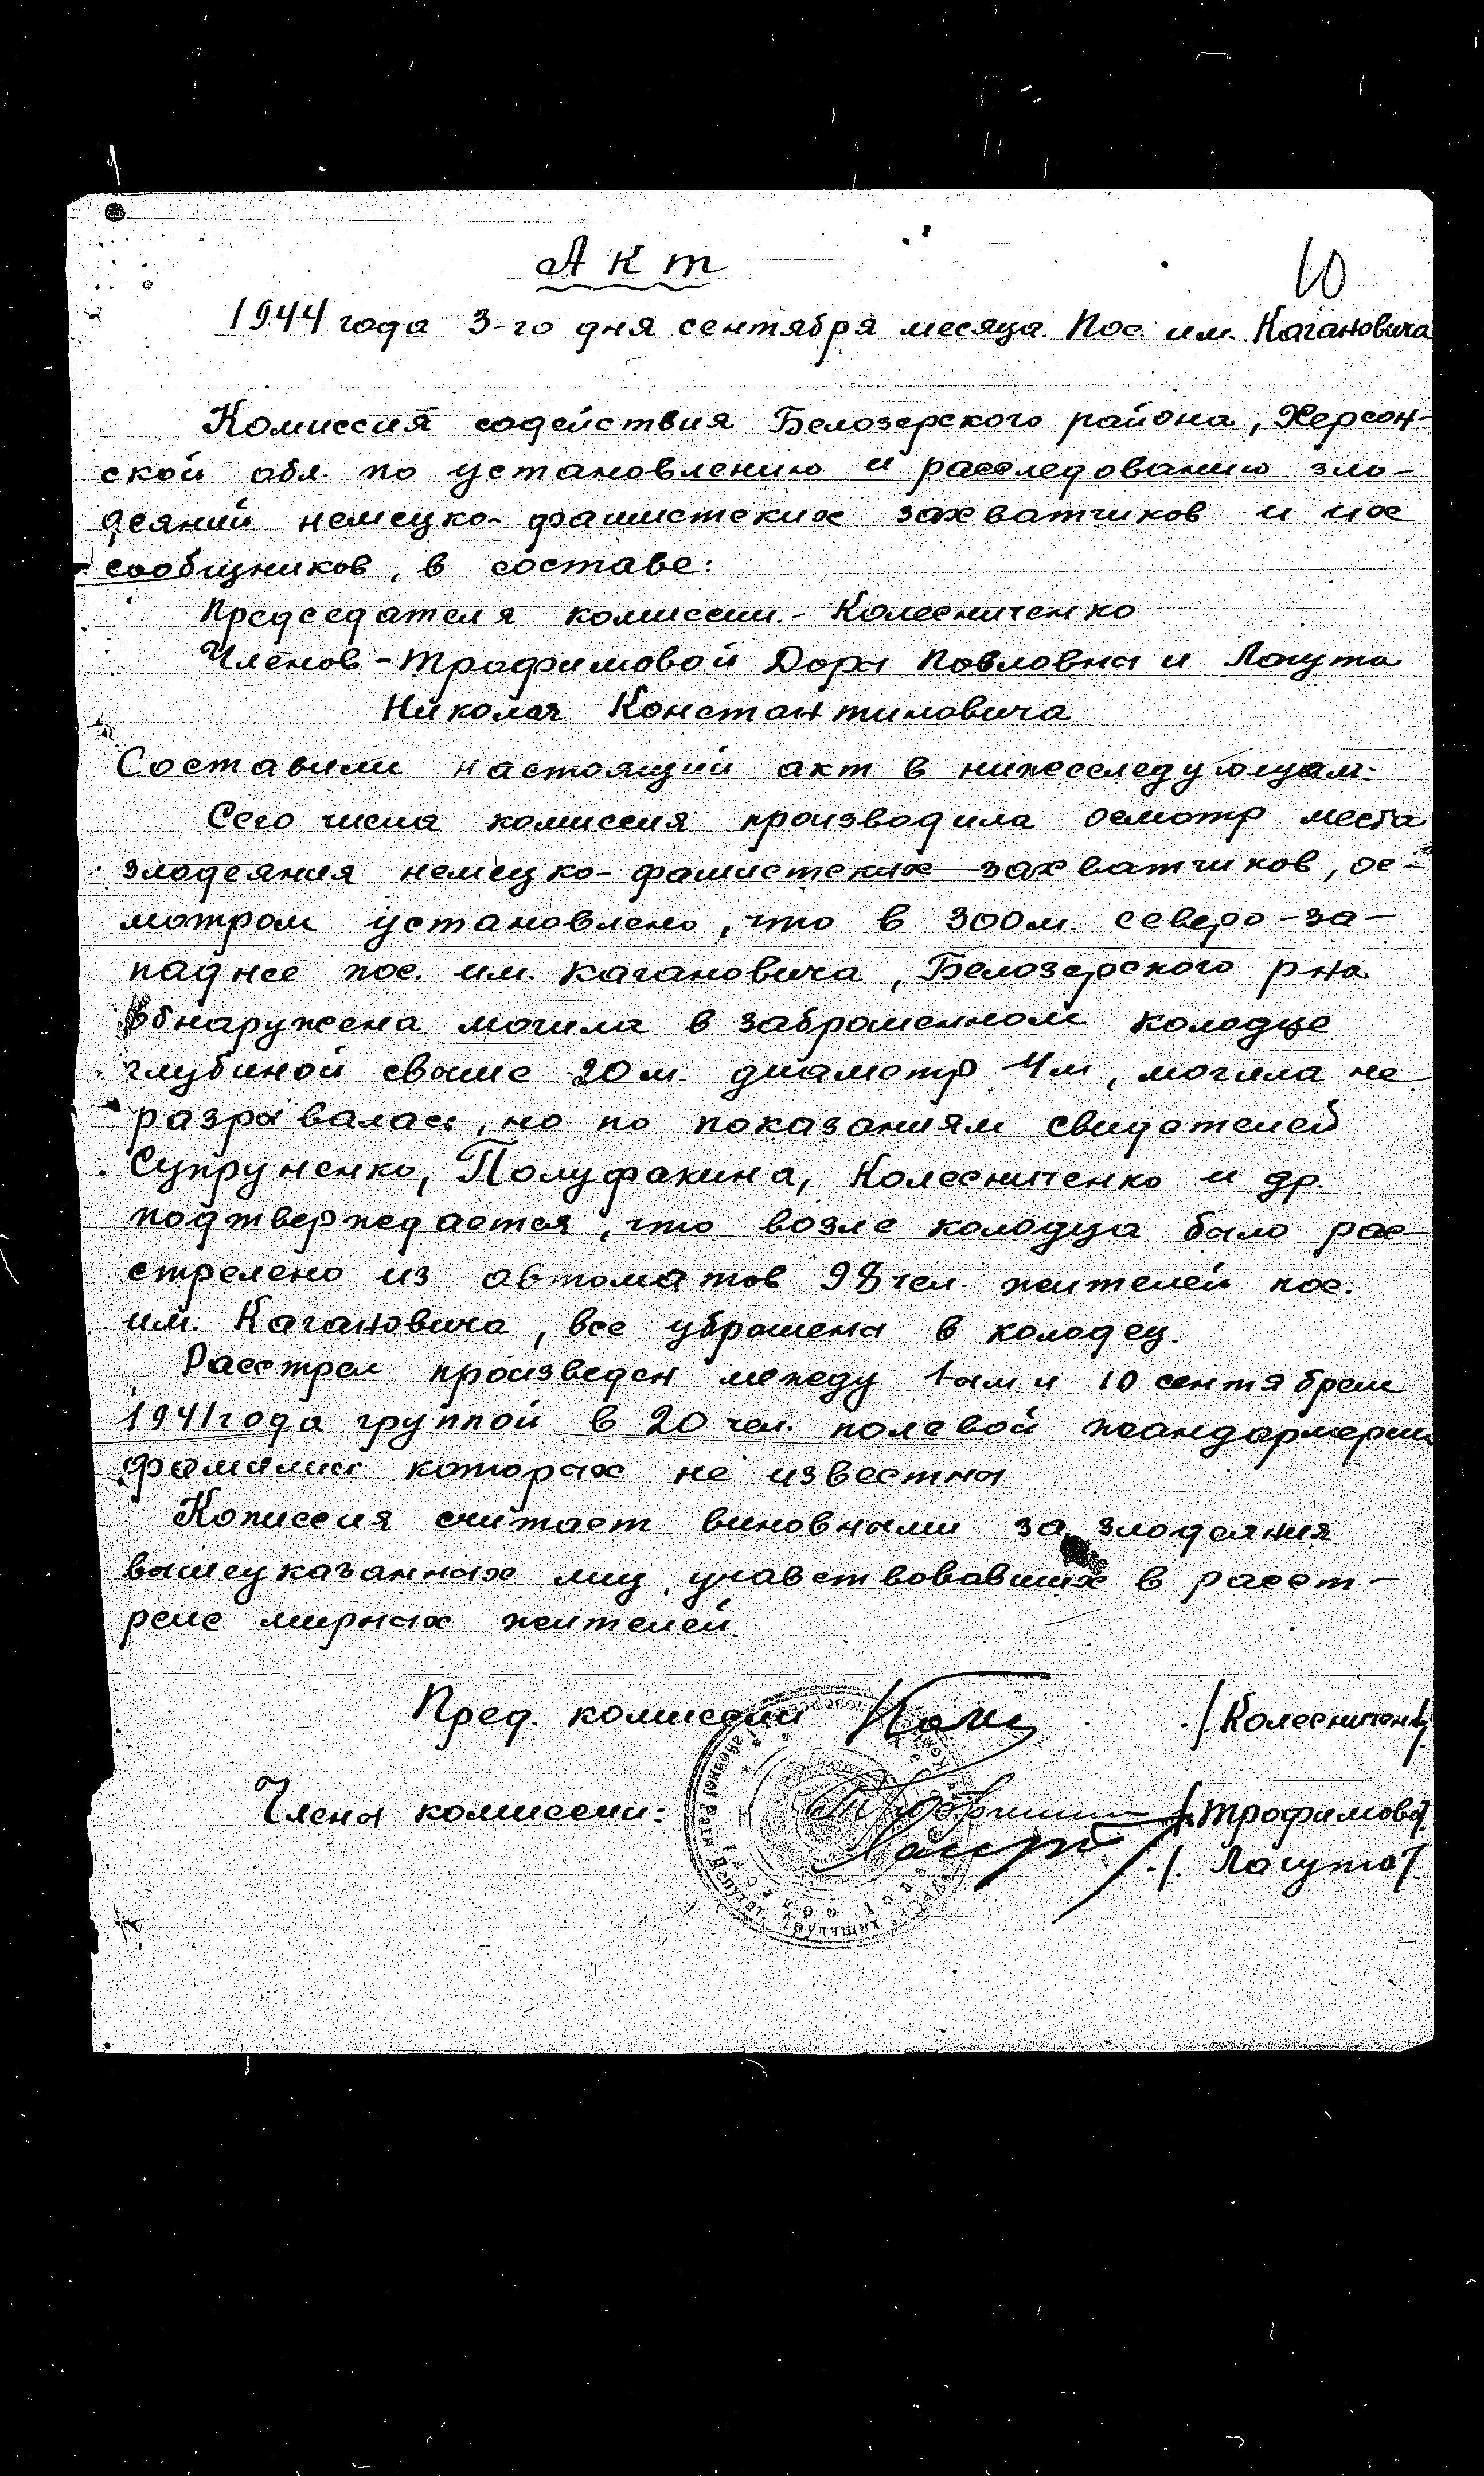 Акт
10
1944 года 3-го дня сентября месяца Пос. им. Кагановича
Комиссия содействия Белозерского района, Херсон-
ской обл. по установлению и расследованию зло-
деяний немецко-фашистских захватчиков и их
сообщников, в составе:
Председателя комиссии - Колесниченко
Членов - Трофимовой Доры Повловны и Логута
Николая Константиновича
Составили настоящий акт в нижеследующем:
Сего числа комиссия производила осмотр места
злодеяния немецко-фашистских захватчиков, ос-
мотром установлено, что в 300 м. северо-за-
паднее пос. им. Кагановича, Белозерского р-на
обнаружена могила в заброшенном колодце
глубиной свыше 20 м. диаметр 4 м, могила не
разрывалась, но по показаниям свидетелей
Супруненко, Полуфакина, Колесниченко и др.
подтверждается, что возле колодца было рас-
стрелено из автоматов 98 чел. жителей пос.
им. Кагановича, все уброшены в колодец.
Расстрел произведен между 1-ым и 10 сентябрем
1941 года группой в 20 чел. полевой жандармерии
фамилии которых не известны
Комиссия считает виновными за злодеяния
вышеуказанных лиц, учавствовавших в расст-
реле мирных жителей.
Пред. комиссии /Колесниченко/
Члены комиссии: /Трофимова/
/Логута/